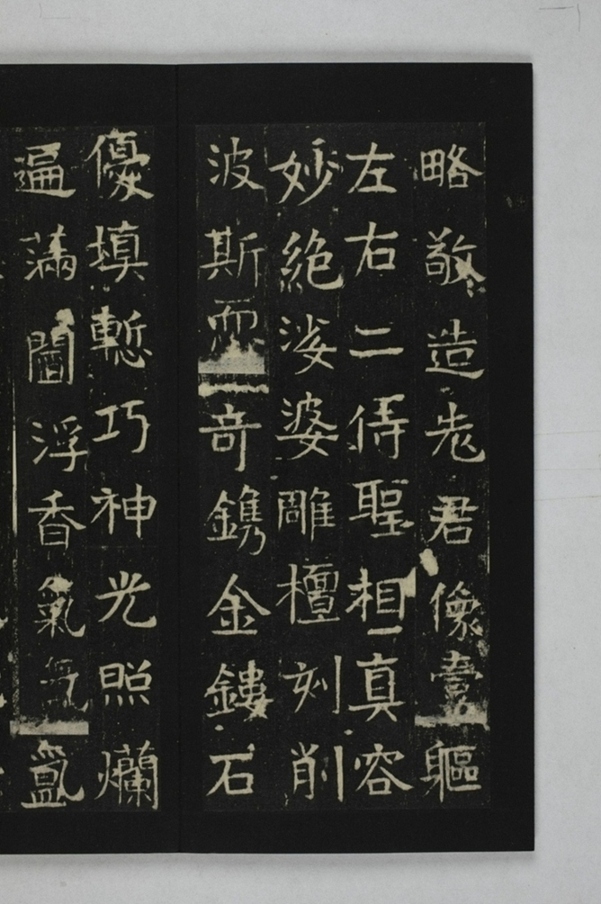 略敬造老君像壹軀
左右二侍聖相真容
妙絶娑婆雕檀刻削
波斯而奇鐫金鏤石
優填慙巧神光照爛
遍滿閻浮香氣氛氳